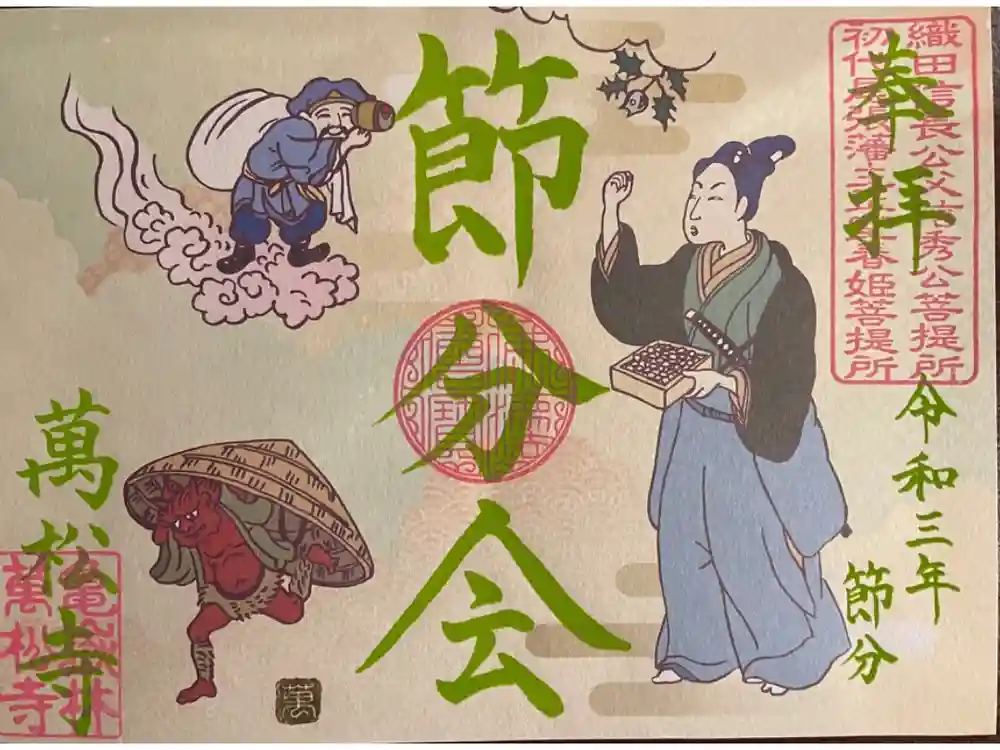 奉拝
織田信長公父君信秀公菩提所
初代尾張藩主正室春姫菩提所
令和三年
節分
節分会
萬松寺
亀岳林
萬松寺
萬